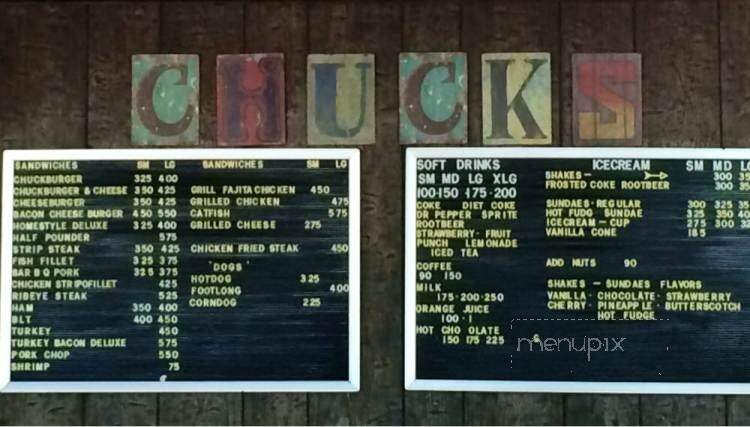 CHUCKS
SANDWICHES SM LG
CHUCKBURGER 325 400
CHUCKBURGER & CHEESE 350 425
CHEESEBURGER 350 425
BACON CHEESE BURGER 450 550
HOMESTYLE DELUXE 325 400
HALF POUNDER 575
STRIP STEAK 350 425
FISH FILLET 325 375
BAR B Q PORK 325 375
CHICKEN STRIPOFILLET 425
RIBEYE STEAK 525
HAM 350 400
BLT 400 450
TURKEY 450
TURKEY BACON DELUXE 575
PORK CHOP 550
SHRIMP 75
SANDWICHES SM LG
GRILL FAJITA CHICKEN 450
GRILLED CHICKEN 475
CATFISH 575
GRILLED CHEESE 275
CHICKEN FRIED STEAK 450
"DOGS"
HOTDOG 325
FOOTLONG 400
CORNDOG 225
SOFT DRINKS
SM MD LG XLG
100·150·175·200
COKE DIET COKE
DR PEPPER SPRITE
ROOTBEER
STRAWBERRY· FRUIT
PUNCH LEMONADE
ICED TEA
COFFEE
90 150
MILK
175·200·250
ORANGE JUICE
100 · 1
HOT CHO OLATE
150 175 225
ICECREAM SM MD
SHAKES— 300
FROSTED COKE ROOTBEER 300
SUNDAES·REGULAR 300 325
HOT FUDG SUNDAE 325 350
ICECREAM—CUP 275 300
VANILLA CONE 185
ADD NUTS 90
SHAKES — SUNDAES FLAVORS
VANILLA· CHOCOLATE· STRAWBERRY
CHERRY· PINEAPPLE· BUTTERSCOTCH
HOT FUDGE
menupix